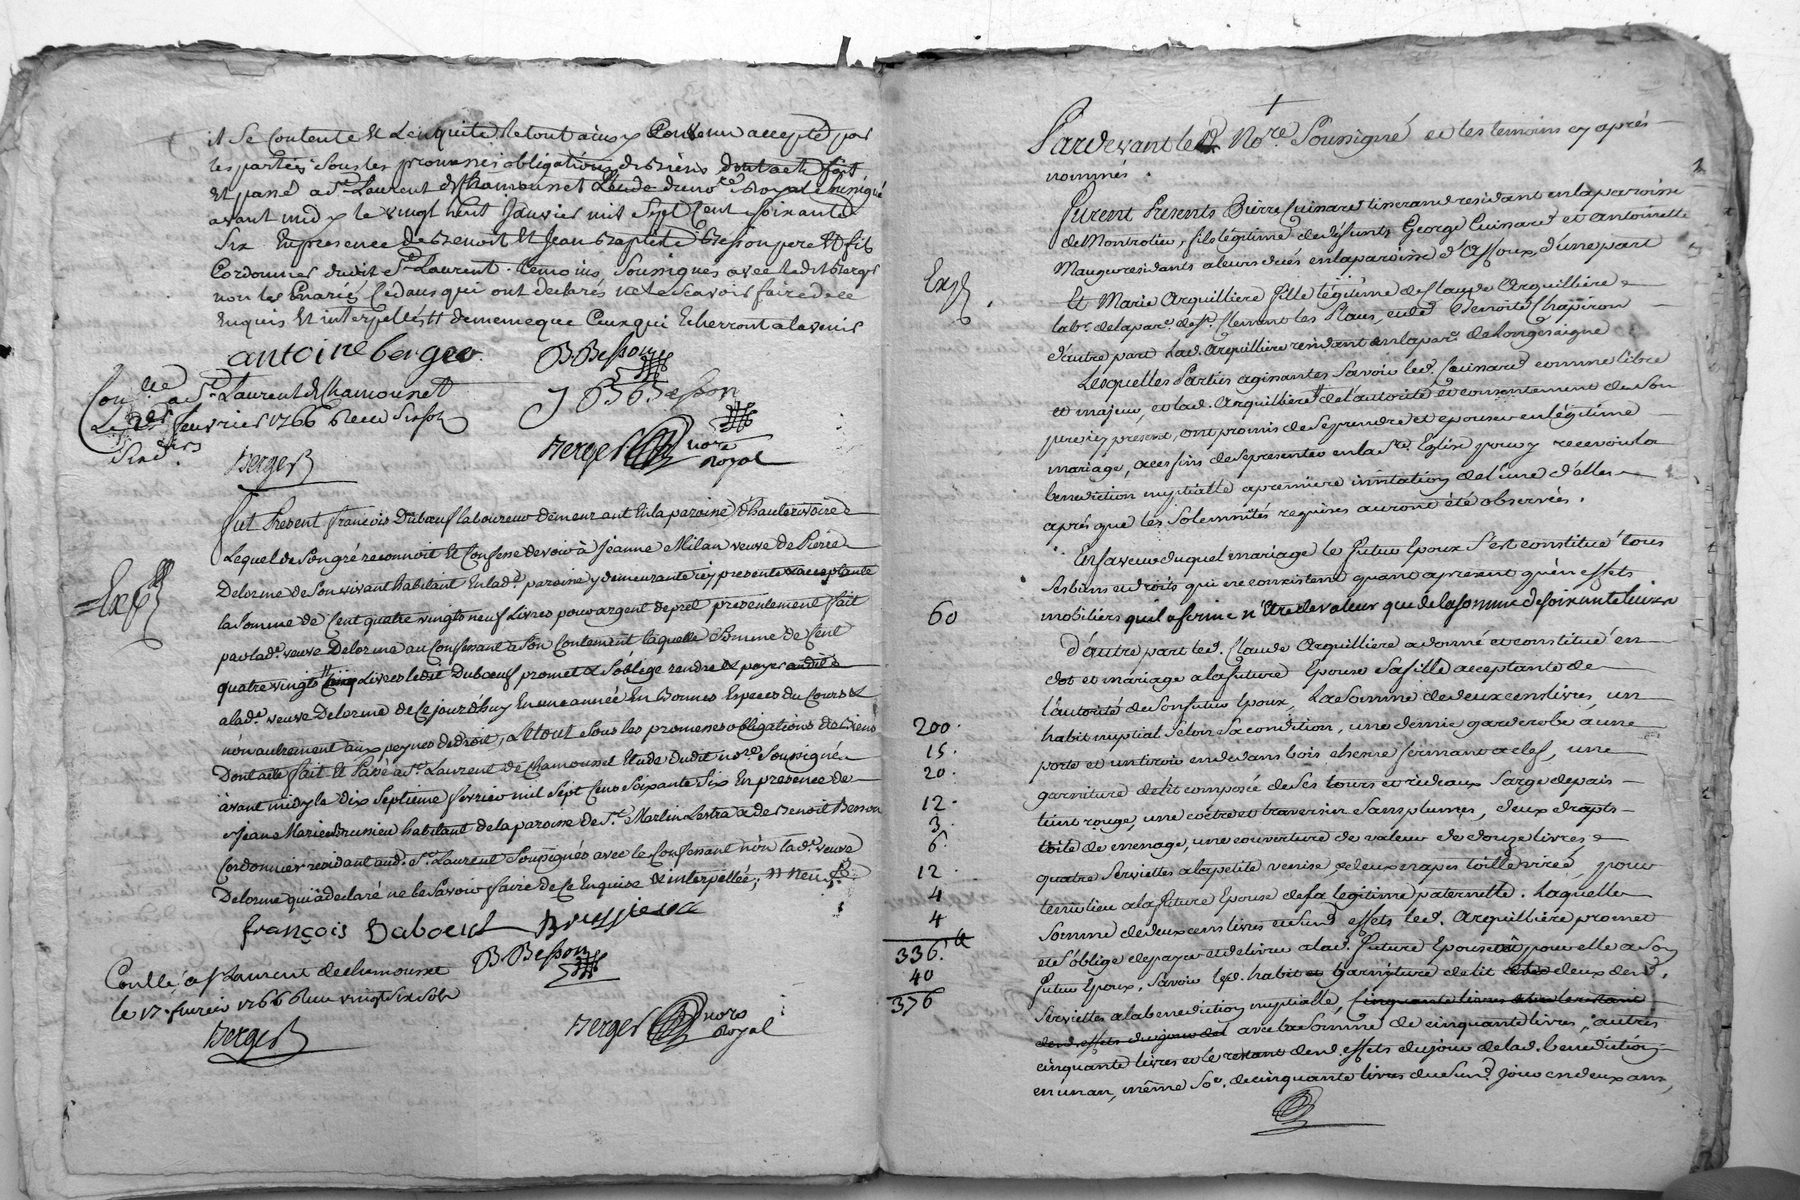 il se contente et l'enquitte le tout ainsy Convenu accepté par
les parties sous les promesses obligations de biens dont acte fait
et passé a St. Laurent de Chamousset Etude du no.re Royal soussigné
avant midy le vingt huit Janvier mil sept Cent soixante
Six En presence de Benoit Et Jean Baptiste Besson pere Et fils
Cordonnier dudit St. Laurent. temoins soussignés avec ledit Berger
non les qui ont declarés ne le scavoir faire de ce
Enquis Et interpellés de meme que Ceux qui
antoine berger
B. Besson
Con.llé a St. Laurent de Chamousset
Le fevrier 1766 Receu
J B Besson
Berger
Berger nore
Royal
fut Present françois Dubœuf laboureur demeurant En la paroisse d'hauterivoire
Lequel de son gré reconnoit Et Confesse devoir à Jeanne Milan veuve de Pierre
Delorme de son vivant habitant En lad.e paroisse y demeurante icy presente & acceptante
Exp.é
la somme de Cent quatre vingts neuf Livres pour argent de pret presentement fait
par lad.e veuve Delorme au Confessant a son Contentement laquelle somme de Cent
quatre vingts Livres ledit Dubœuf promet & s'oblige rendre & payer
a lad.e veuve Delorme de Ce jourd'huy En une année En Bonnes Especes du Cours &
non autrement aux peynes de droit, Le tout sous les promesses obligations de Biens
Dont acte fait Et Passé a St. Laurent de Chamousset Etude dudit no.re soussigné
avant midy le dix septieme fevrier mil sept Cens soixante Six En presence de
Jean Marie Brussieu habitant de la paroisse de St. Martin Lestra & de Benoit Besson
Cordonnier residant aud. St. Laurent soussignés avec le Confessant non lad.e veuve
Delorme qui a declaré ne le scavoir faire de Ce Enquise & interpellée,
françois Daboeuf Brussieux
B. Besson
Conllé a St. Laurent de chamousset
le 17. fevrier 1766 Receu vingt six sols
Berger
Berger nore
Royal
Pardevant le No.re Soussigné et les temoins cy après
nommés.
Furent Presents Pierre Cuinard tisserand residant en la paroisse
de Montrotier, fils légitime de defunts George Cuinard et antoinette
Maugu residants a leurs decés en la paroisse d'Essoux, d'une part
Exp.é
Et Marie Arquilliere fille légitime de Claude Arquilliere
lab.r de la par.e de St. Clement les Places, et de Benoite Chapiron
d'autre part Lad. Arquilliere residant en la par.e de Longesaigne
Lesquelles Parties agissantes Savoir led. Cuinard comme libre
et majeur, et lad. Arquilliere de l'autorité et consentement de son
pere icy present, ont promis de se prendre et epouser en légitime
mariage, a ces fins de se presenter en la Ste. Eglise pour y recevoir la
benediction nuptialle a premiere invitation de l'une d'elles
après que les solemnités requises auront été observées.
En faveur duquel mariage le futur Epoux s'est constitué tous
ses biens et droits qui ne consistent quant a present qu'en effets
60
mobiliers qu'il afirme n'être de valeur que de la somme de soixante livres
d'autre part led. Claude Arquilliere a donné et constitué en
dot et mariage a la future Epouse sa fille acceptante de
l'autorité de son futur Epoux, La somme de deux cens livres, un
200.
habit nuptial selon sa condition, une demie garderobe à une
15.
porte et un tiroir en dedans bois chesne fermant a clef, une
20.
garniture de lit composée de ses tours et rideaux sarge de pais
12.
teint rouge, une coëtre et traversier sans plumes, deux drapts
3.
toile de menage, une couverture de valeur de douze livres,
6.
quatre serviettes a la petite venise, & deux toille
12.
tenir lieu a la future Epouse de sa legitime paternelle. Laquelle
4
somme de deux cens livres et susd. effets led. Arquilliere promet
4
336.tt
et s'oblige de payer et delivrer a lad. future Epouse ou pour elle a son
40
futur Epoux, Savoir led. habit Garniture de lit deux desd.
376
serviettes a la benediction nuptialle, cinquante livres et le restant
desd. effets du jour de avec la somme de cinquante livres, autres
cinquante livres et le restant desd. effets du jour de lad. benediction
en un an, même so.e de cinquante livres du susd. jour en deux ans,